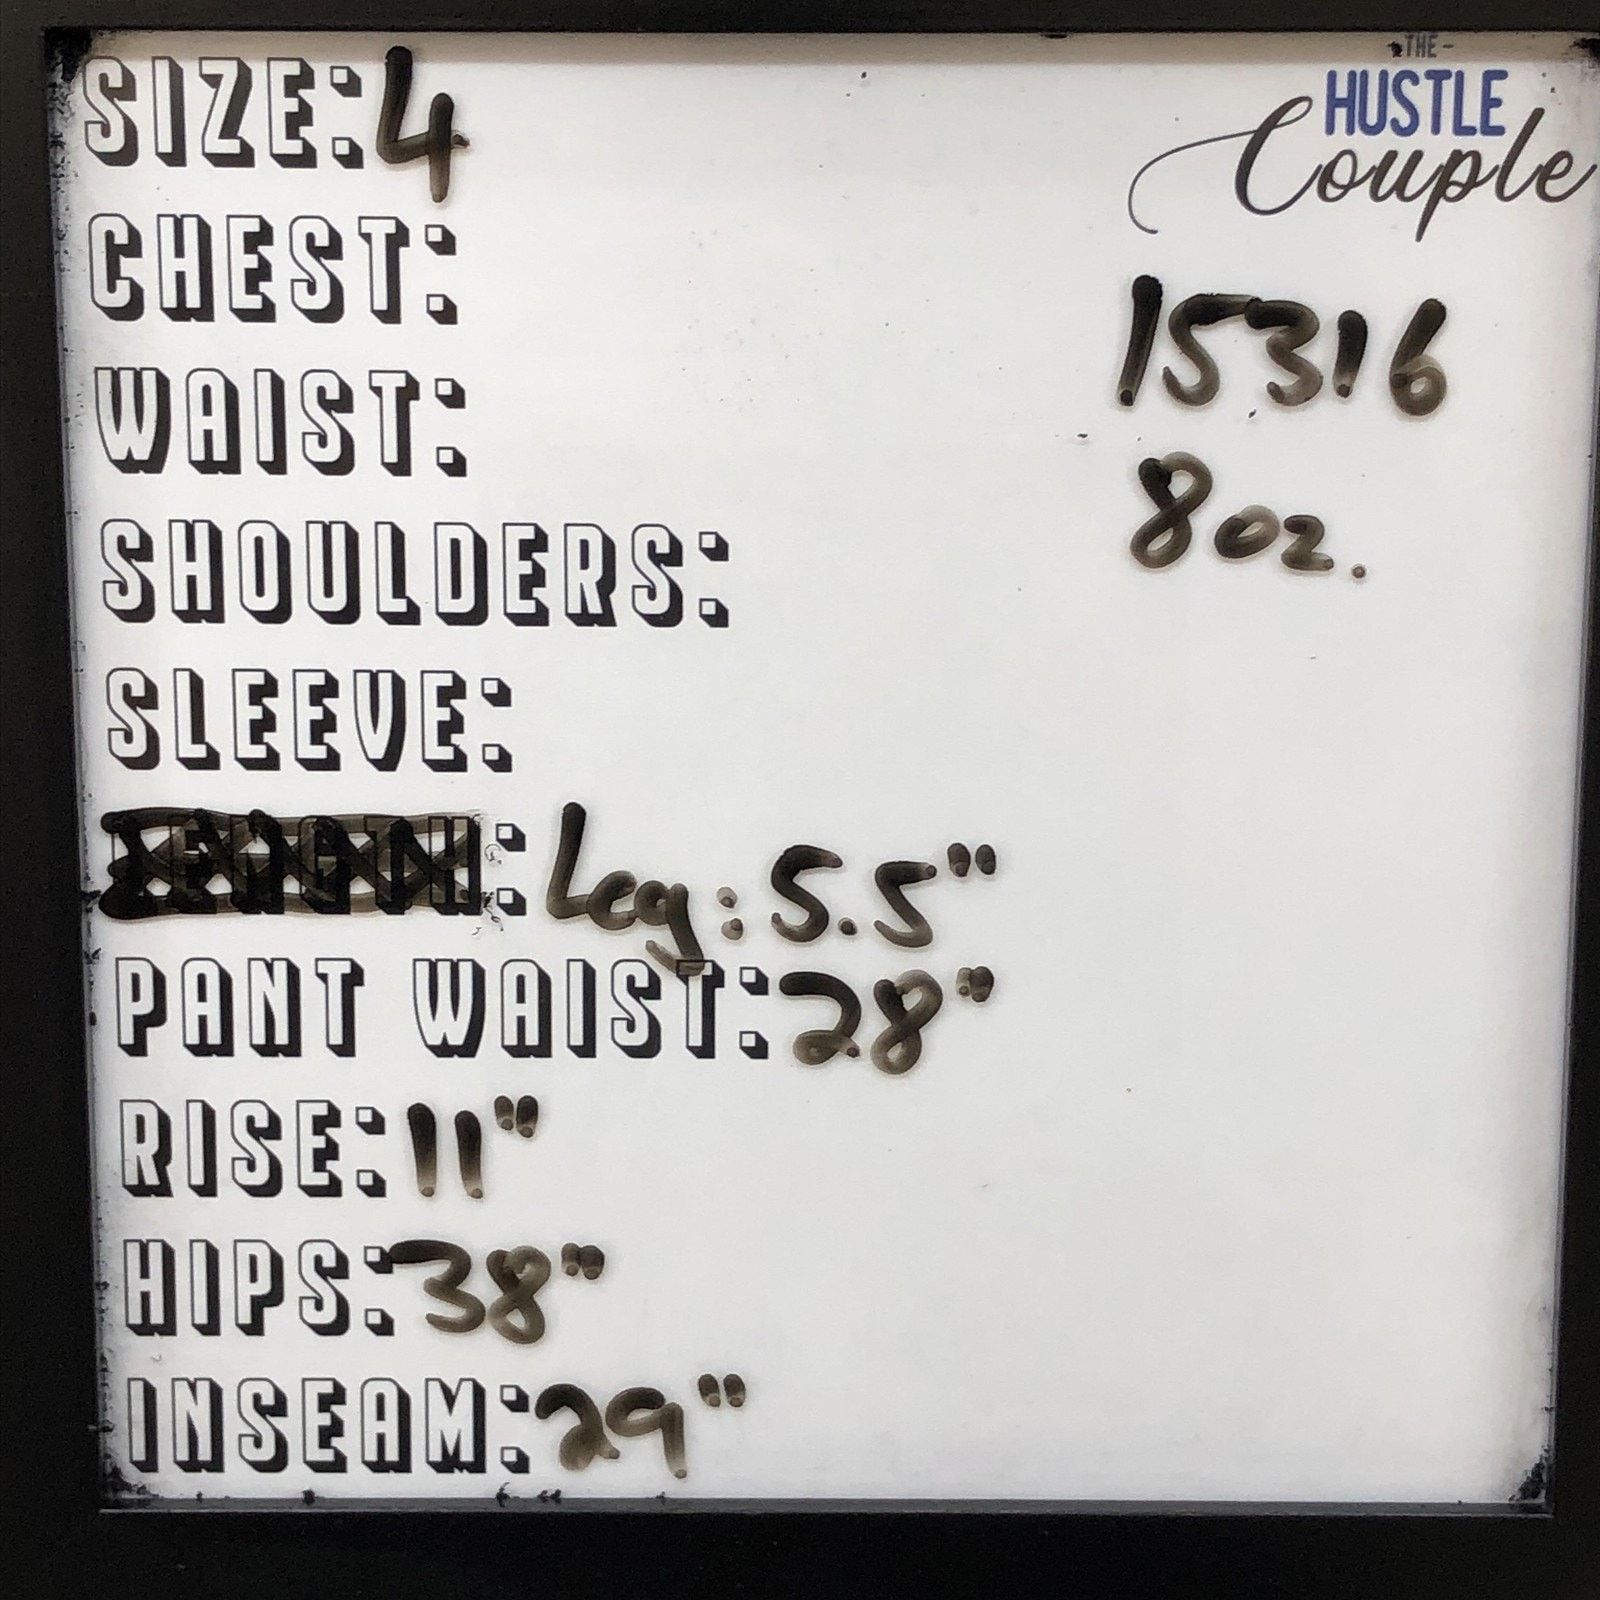 THE -
HUSTLE
Couple
SIZE: 4
CHEST:
15316
WAIST:
8 oz.
SHOULDERS:
SLEEVE:
LENGTH: Leg: 5.5"
PANT WAIST: 28"
RISE: 11"
HIPS: 38"
INSEAM: 29"